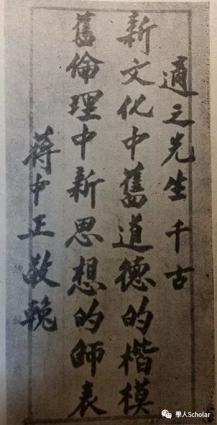 適之先生千古
新文化中舊道德的楷模
舊倫理中新思想的師表
蔣中正敬輓
學人Scholar